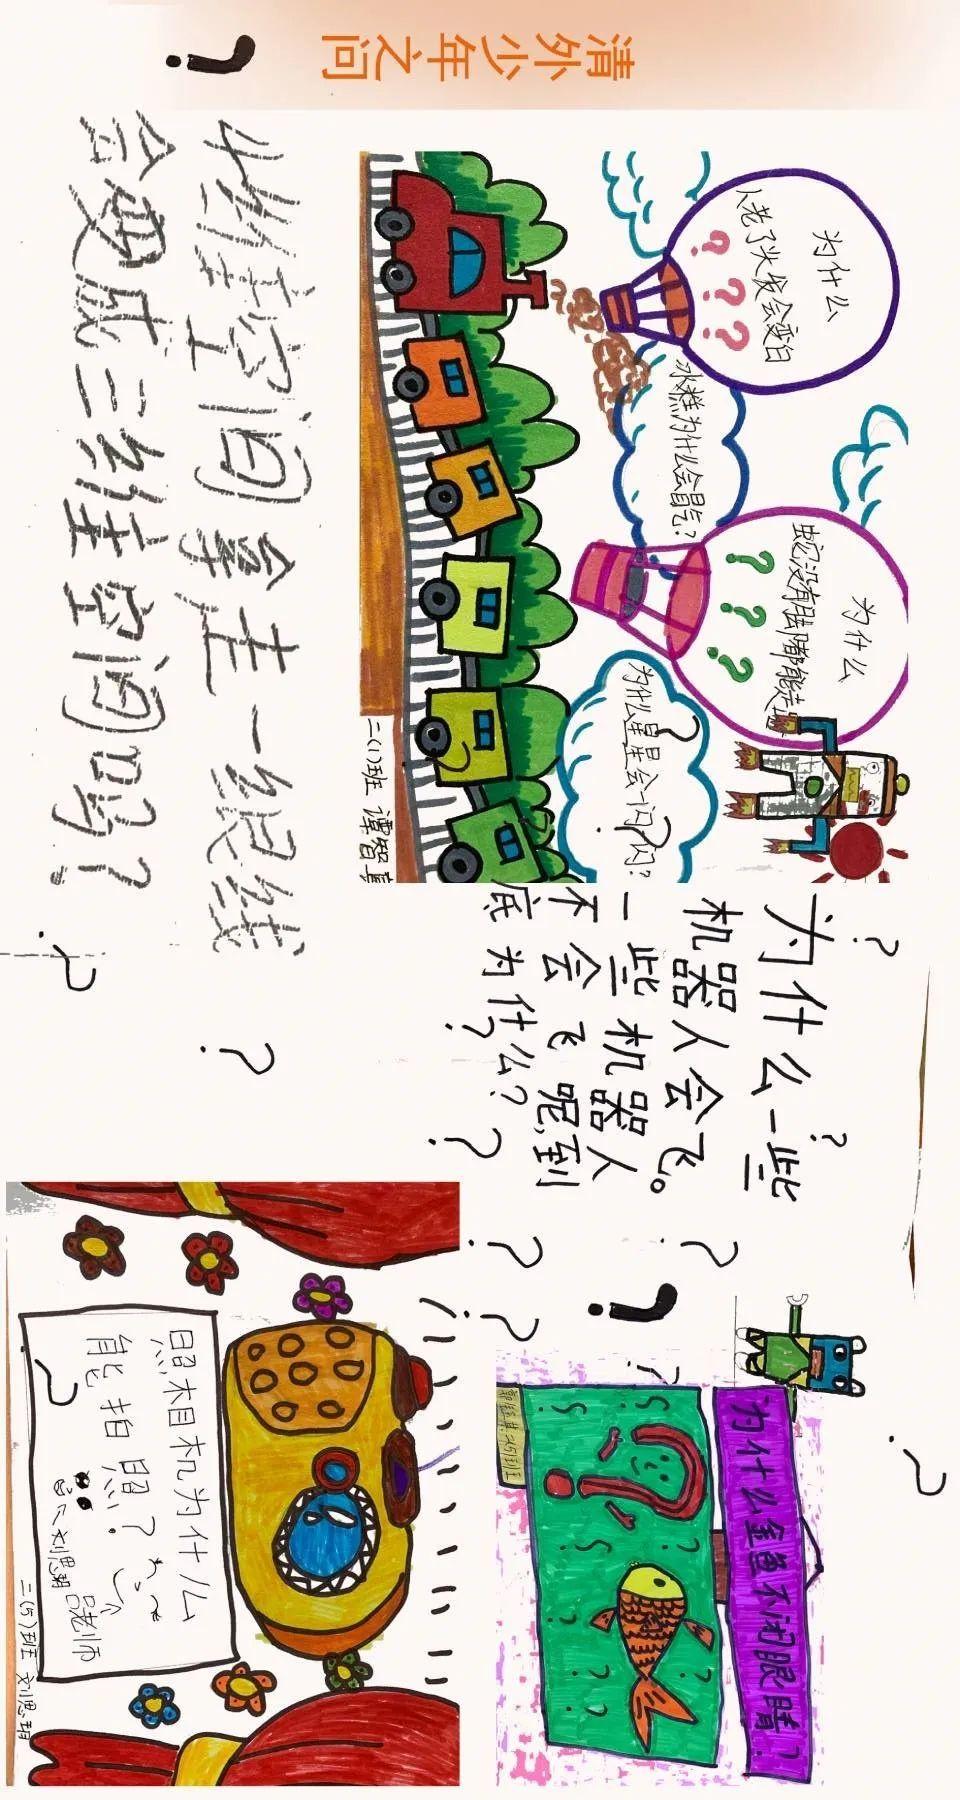 清外少年之问
?
维空间拿走一根线
会变成二维空间吗?
为什么
人老了头发会变白
? ? ?
冰糕为什么会冒气?
为什么
蛇没有脚能走
? ? ?
为什么星星会一闪一闪?
二(1)班 谭智
为什么一些
机器人会飞。
一些机器人
不会飞呢,到
底为什么?
为什么金鱼不闭眼睛?
照相机为什么
能拍照?
老师
二(5)班 刘思